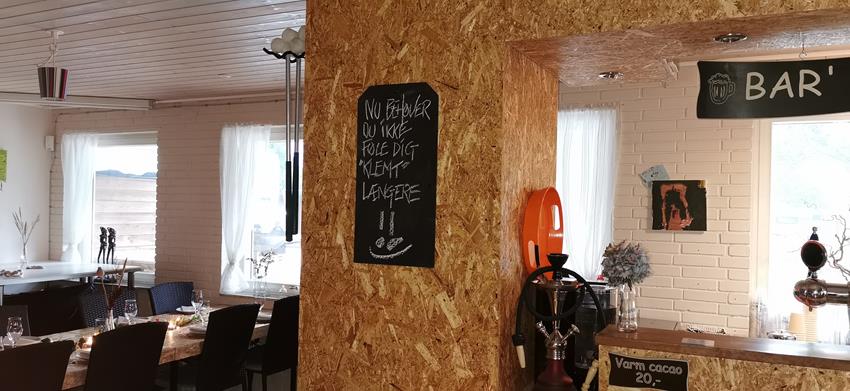 NU BEHØVER
DU IKKE
FØLE DIG
"KLEMT"
LÆNGERE
!!
BAR'
Varm cacao
20,-